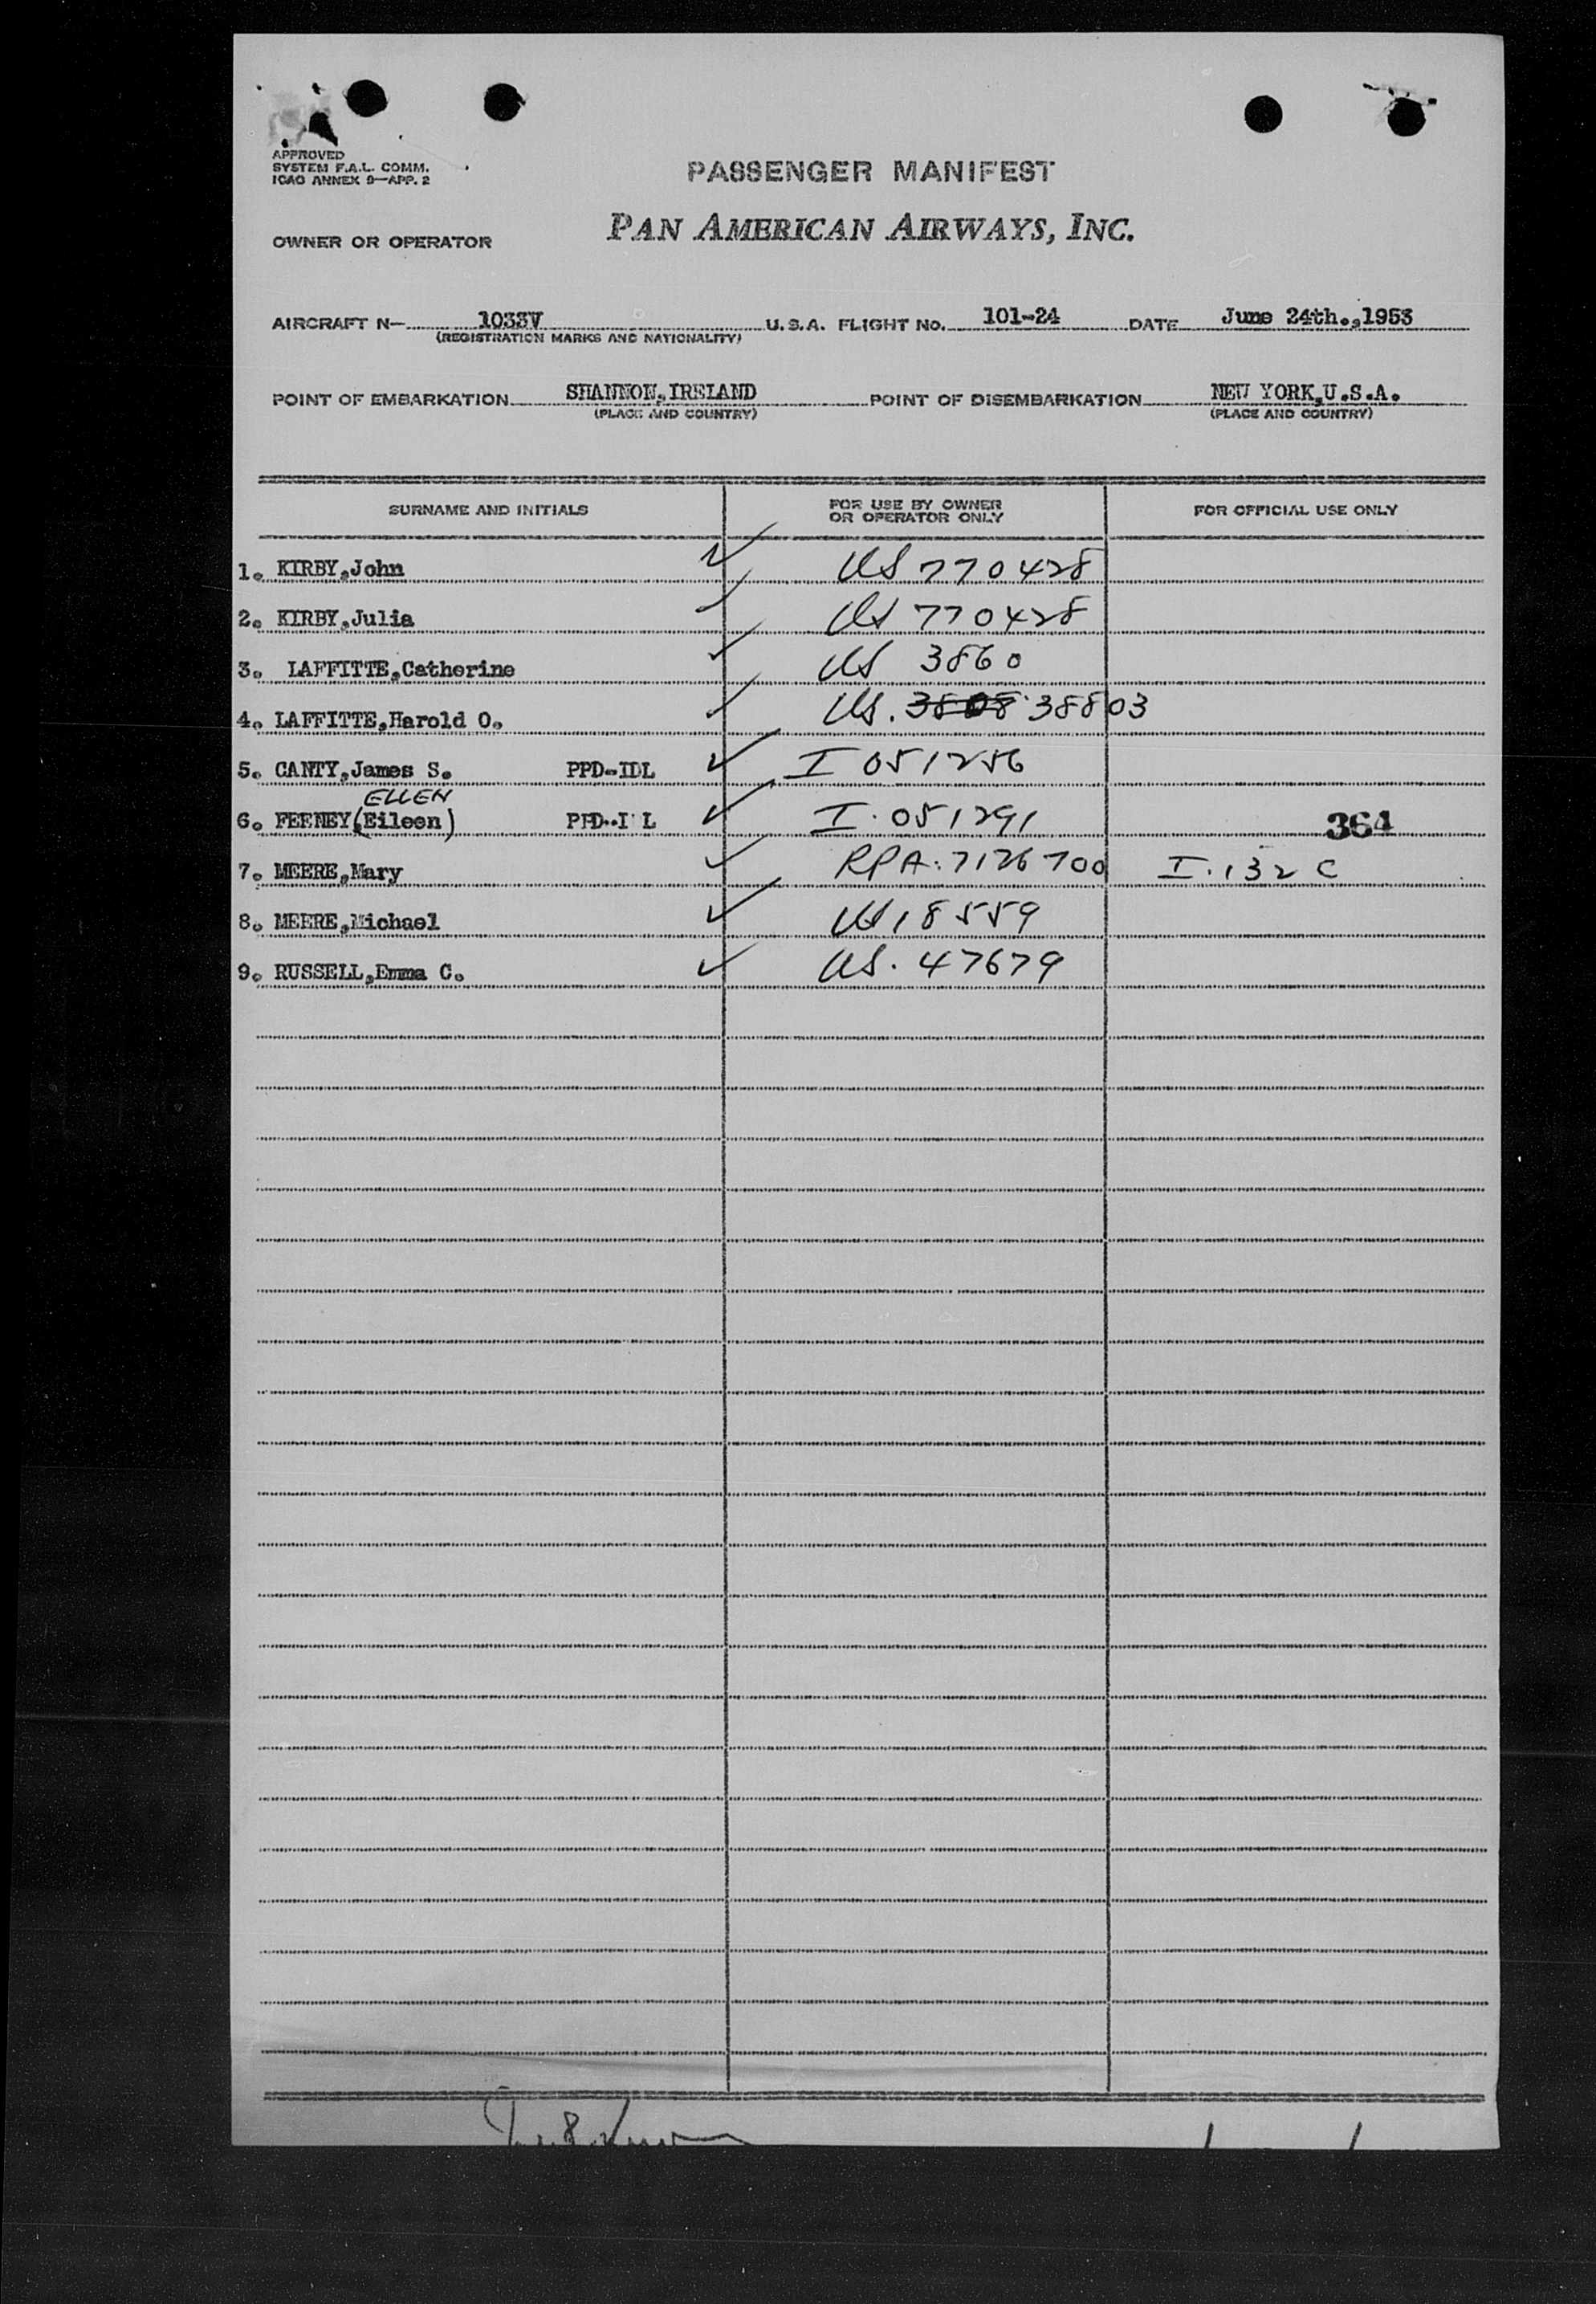 APPROVED
SYSTEM F.A.L. COMM.
ICAO ANNEX 9—APP. 2
PASSENGER MANIFEST
OWNER OR OPERATOR PAN AMERICAN AIRWAYS, INC.
AIRCRAFT N— 1033V U.S.A. FLIGHT NO. 101-24 DATE June 24th.,1953
(REGISTRATION MARKS AND NATIONALITY)
POINT OF EMBARKATION SHANNON,IRELAND POINT OF DISEMBARKATION NEW YORK,U.S.A.
(PLACE AND COUNTRY) (PLACE AND COUNTRY)
SURNAME AND INITIALS FOR USE BY OWNER OR OPERATOR ONLY FOR OFFICIAL USE ONLY
1. KIRBY,John ✓ US 770428
2. KIRBY,Julia ✓ US 770428
3. LAFFITTE,Catherine ✓ US 3860
4. LAFFITTE,Harold O. ✓ US. 3808 38803
5. CANTY,James S. PPD-IDL ✓ I 051256
ELLEN
6. FEENEY(,Eileen) PPD-I L ✓ I. 051291 364
7. MEERE,Mary ✓ RPA. 7126700 I. 132 C
8. MEERE,Michael ✓ US 18559
9. RUSSELL,Emma C. ✓ US. 47679